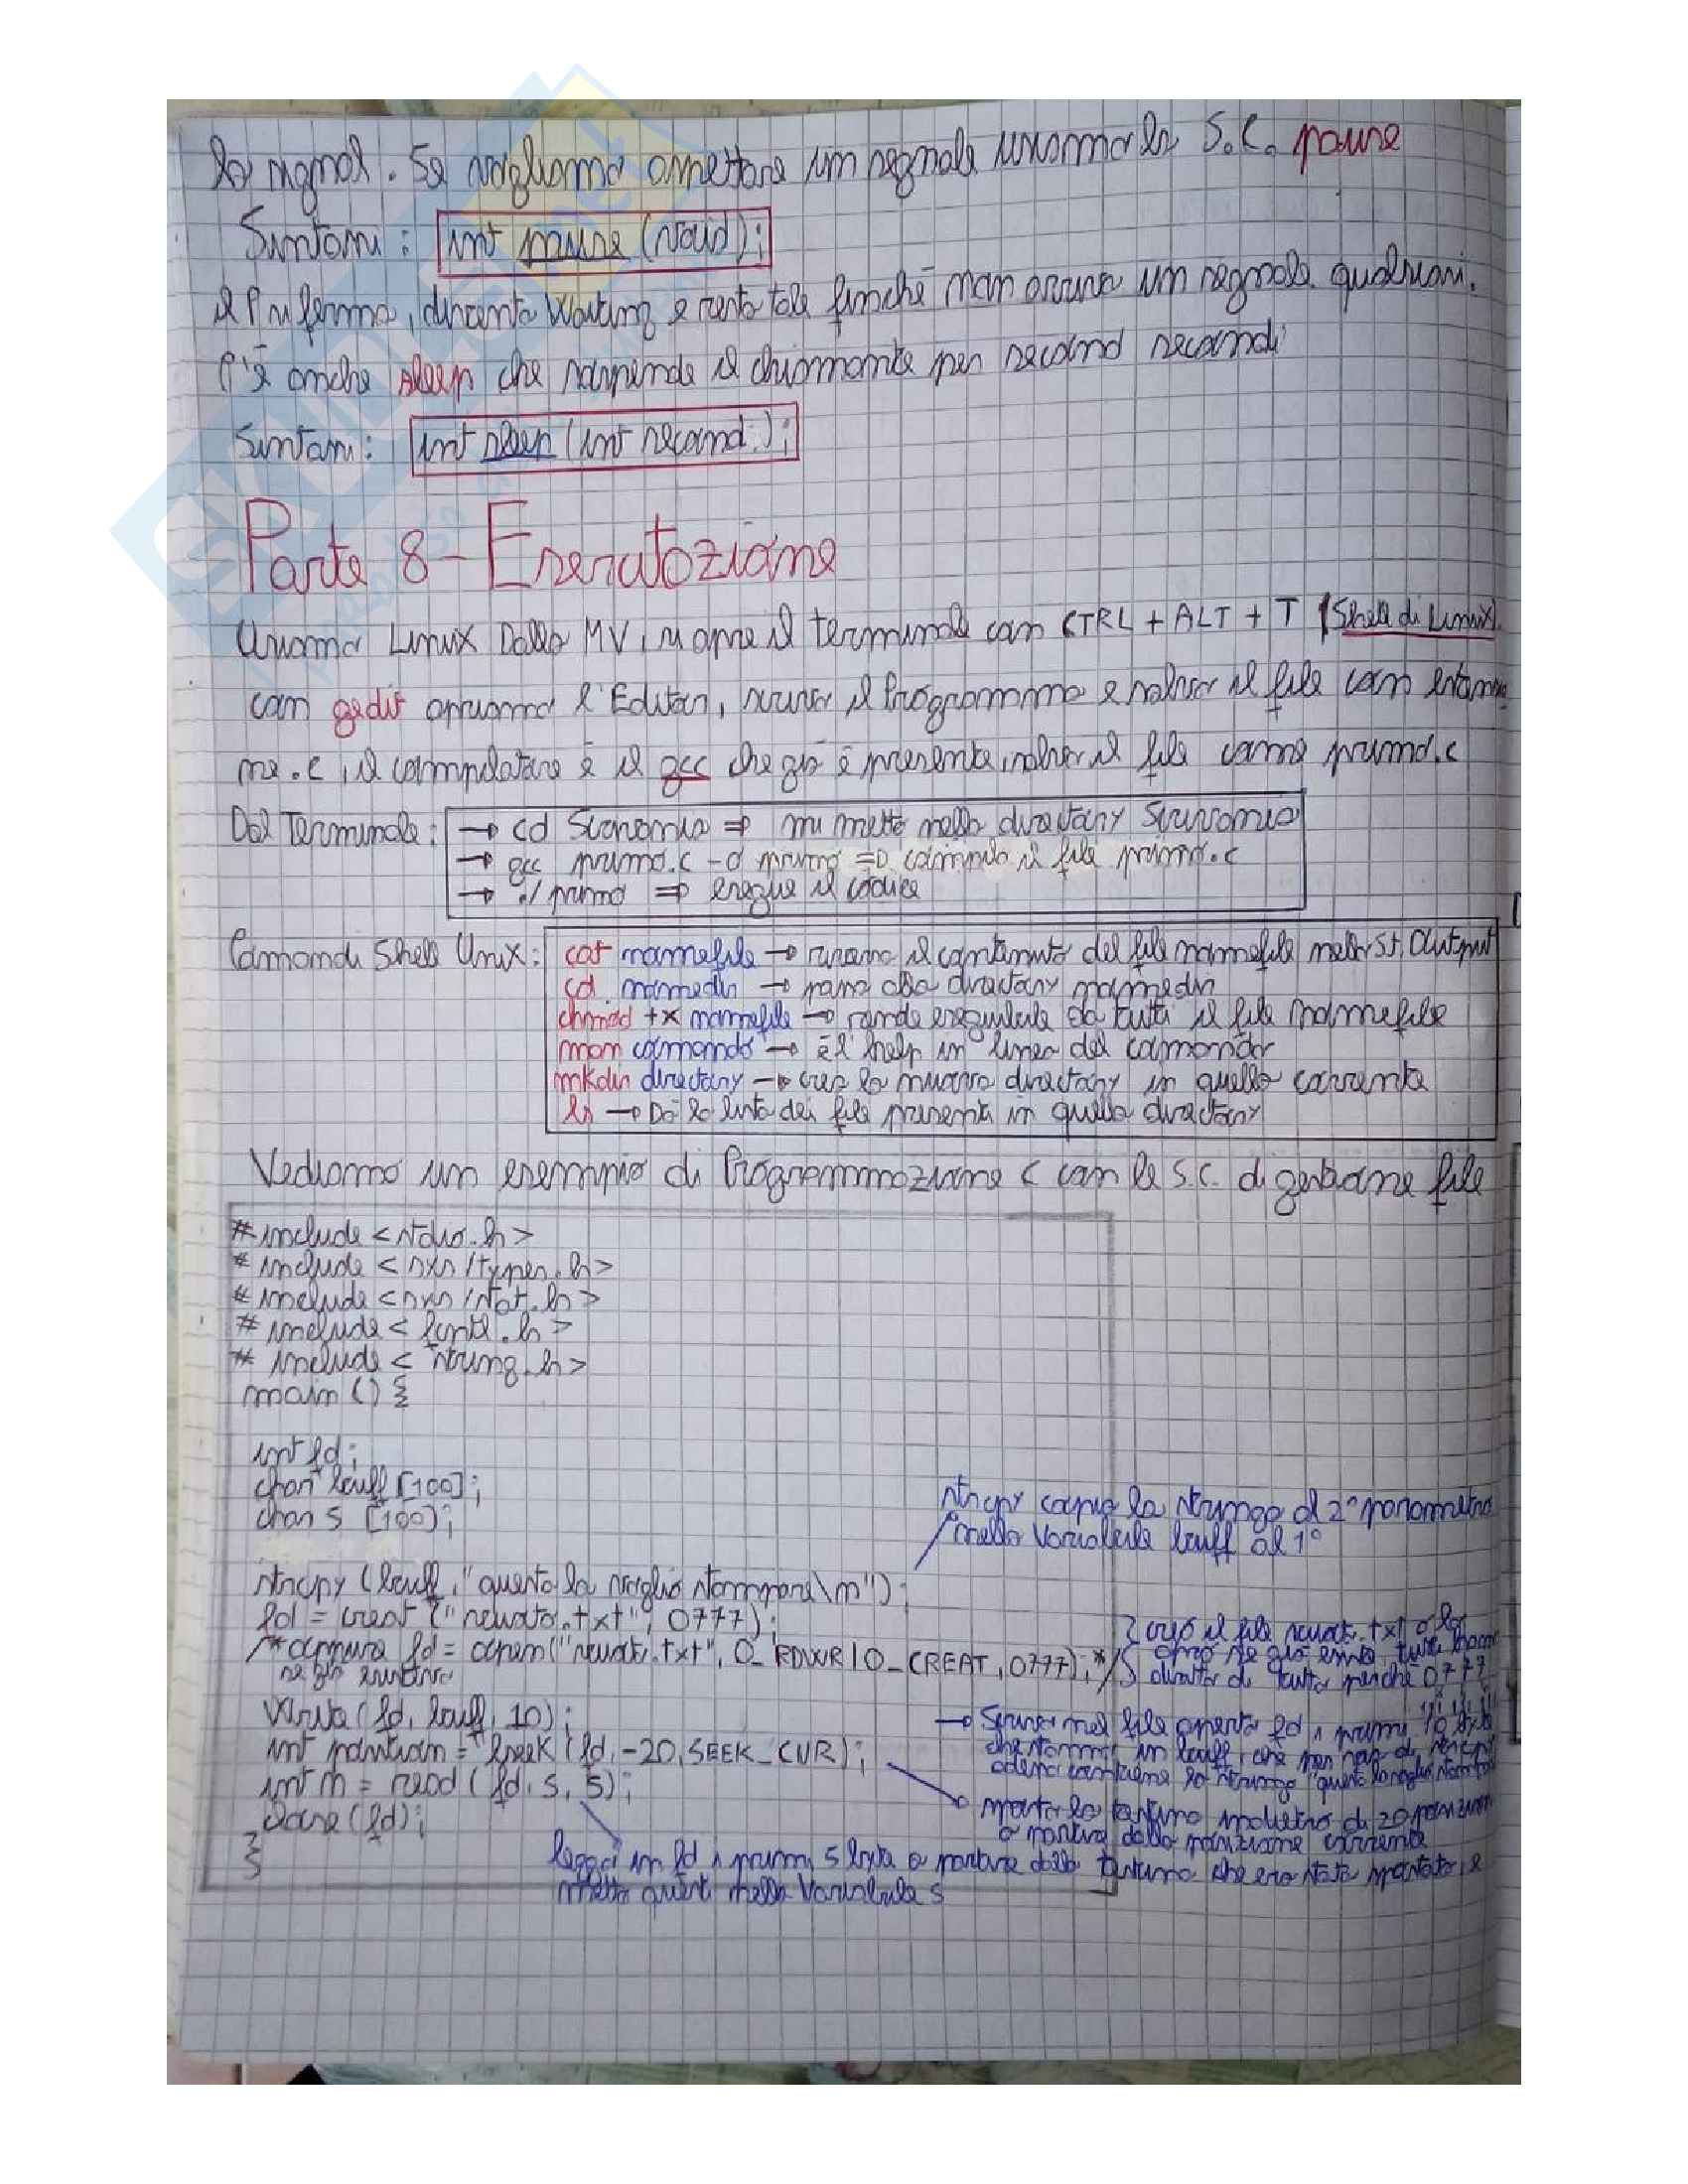 la signal. Se vogliamo aspettare un segnale usiamo la S.C. pause
Sintassi: int pause (void);
il P si ferma, diventa Waiting e resta tale finché non arriva un segnale qualsiasi.
C'è anche sleep che sospende il chiamante per second secondi
Sintassi: int sleep (int second.);
Parte 8 - Esercitazione
Usiamo Linux Dalla MV, si apre il terminale con CTRL + ALT + T (Shell di Linux)
con gedit apriamo l'Editor, scrivo il Programma e salvo il file con estensio
ne .c, il compilatore è il gcc che già è presente, salvo il file come primo.c
Dal Terminale:
→ cd Scrivania ⇒ mi metto nella directory Scrivania
→ gcc primo.c -o primo ⇒ compila il file primo.c
→ ./primo ⇒ esegue il codice
Comandi Shell Unix: cat nomefile → riversa il contenuto del file nomefile nello St. Output
cd nomedir → passa alla directory nomedir
chmod +x nomefile → rende eseguibile da tutti il file nomefile
man comando → è l'help in linea del comando
mkdir directory → crea la nuova directory in quella corrente
ls → Dà la lista dei file presenti in quella directory
Vediamo un esempio di Programmazione C con le S.C. di gestione file
#include <stdio.h>
#include <sys/types.h>
#include <sys/stat.h>
#include <fcntl.h>
#include <string.h>
main () {
int fd;
char buff [100];
char s [100];
strcpy copia la stringa al 2° parametro
nella variabile buff al 1°
strcpy (buff, "questo la voglio stampare\n");
fd = creat ("new.txt", 0777);
/* oppure fd = open("new.txt", O_RDWR|O_CREAT, 0777); */
se già esisteva
creo il file .txt o lo
apro se già esiste, tutti hanno
diritto di tutto perché 0777
Write (fd, buff, 10);
→ Scrivo nel file aperto fd i primi 10 byte
che stanno in buff, che per
adesso contiene la stringa "questo la voglio
int position = lseek (fd, -20, SEEK_CUR);
sposta la testina indietro di 20 posizioni
a partire dalla posizione corrente
int n = read (fd, s, 5);
close (fd);
}
leggo in fd i primi 5 byte a partire dalla testina che era stata spostata e
metto questi nella variabile s